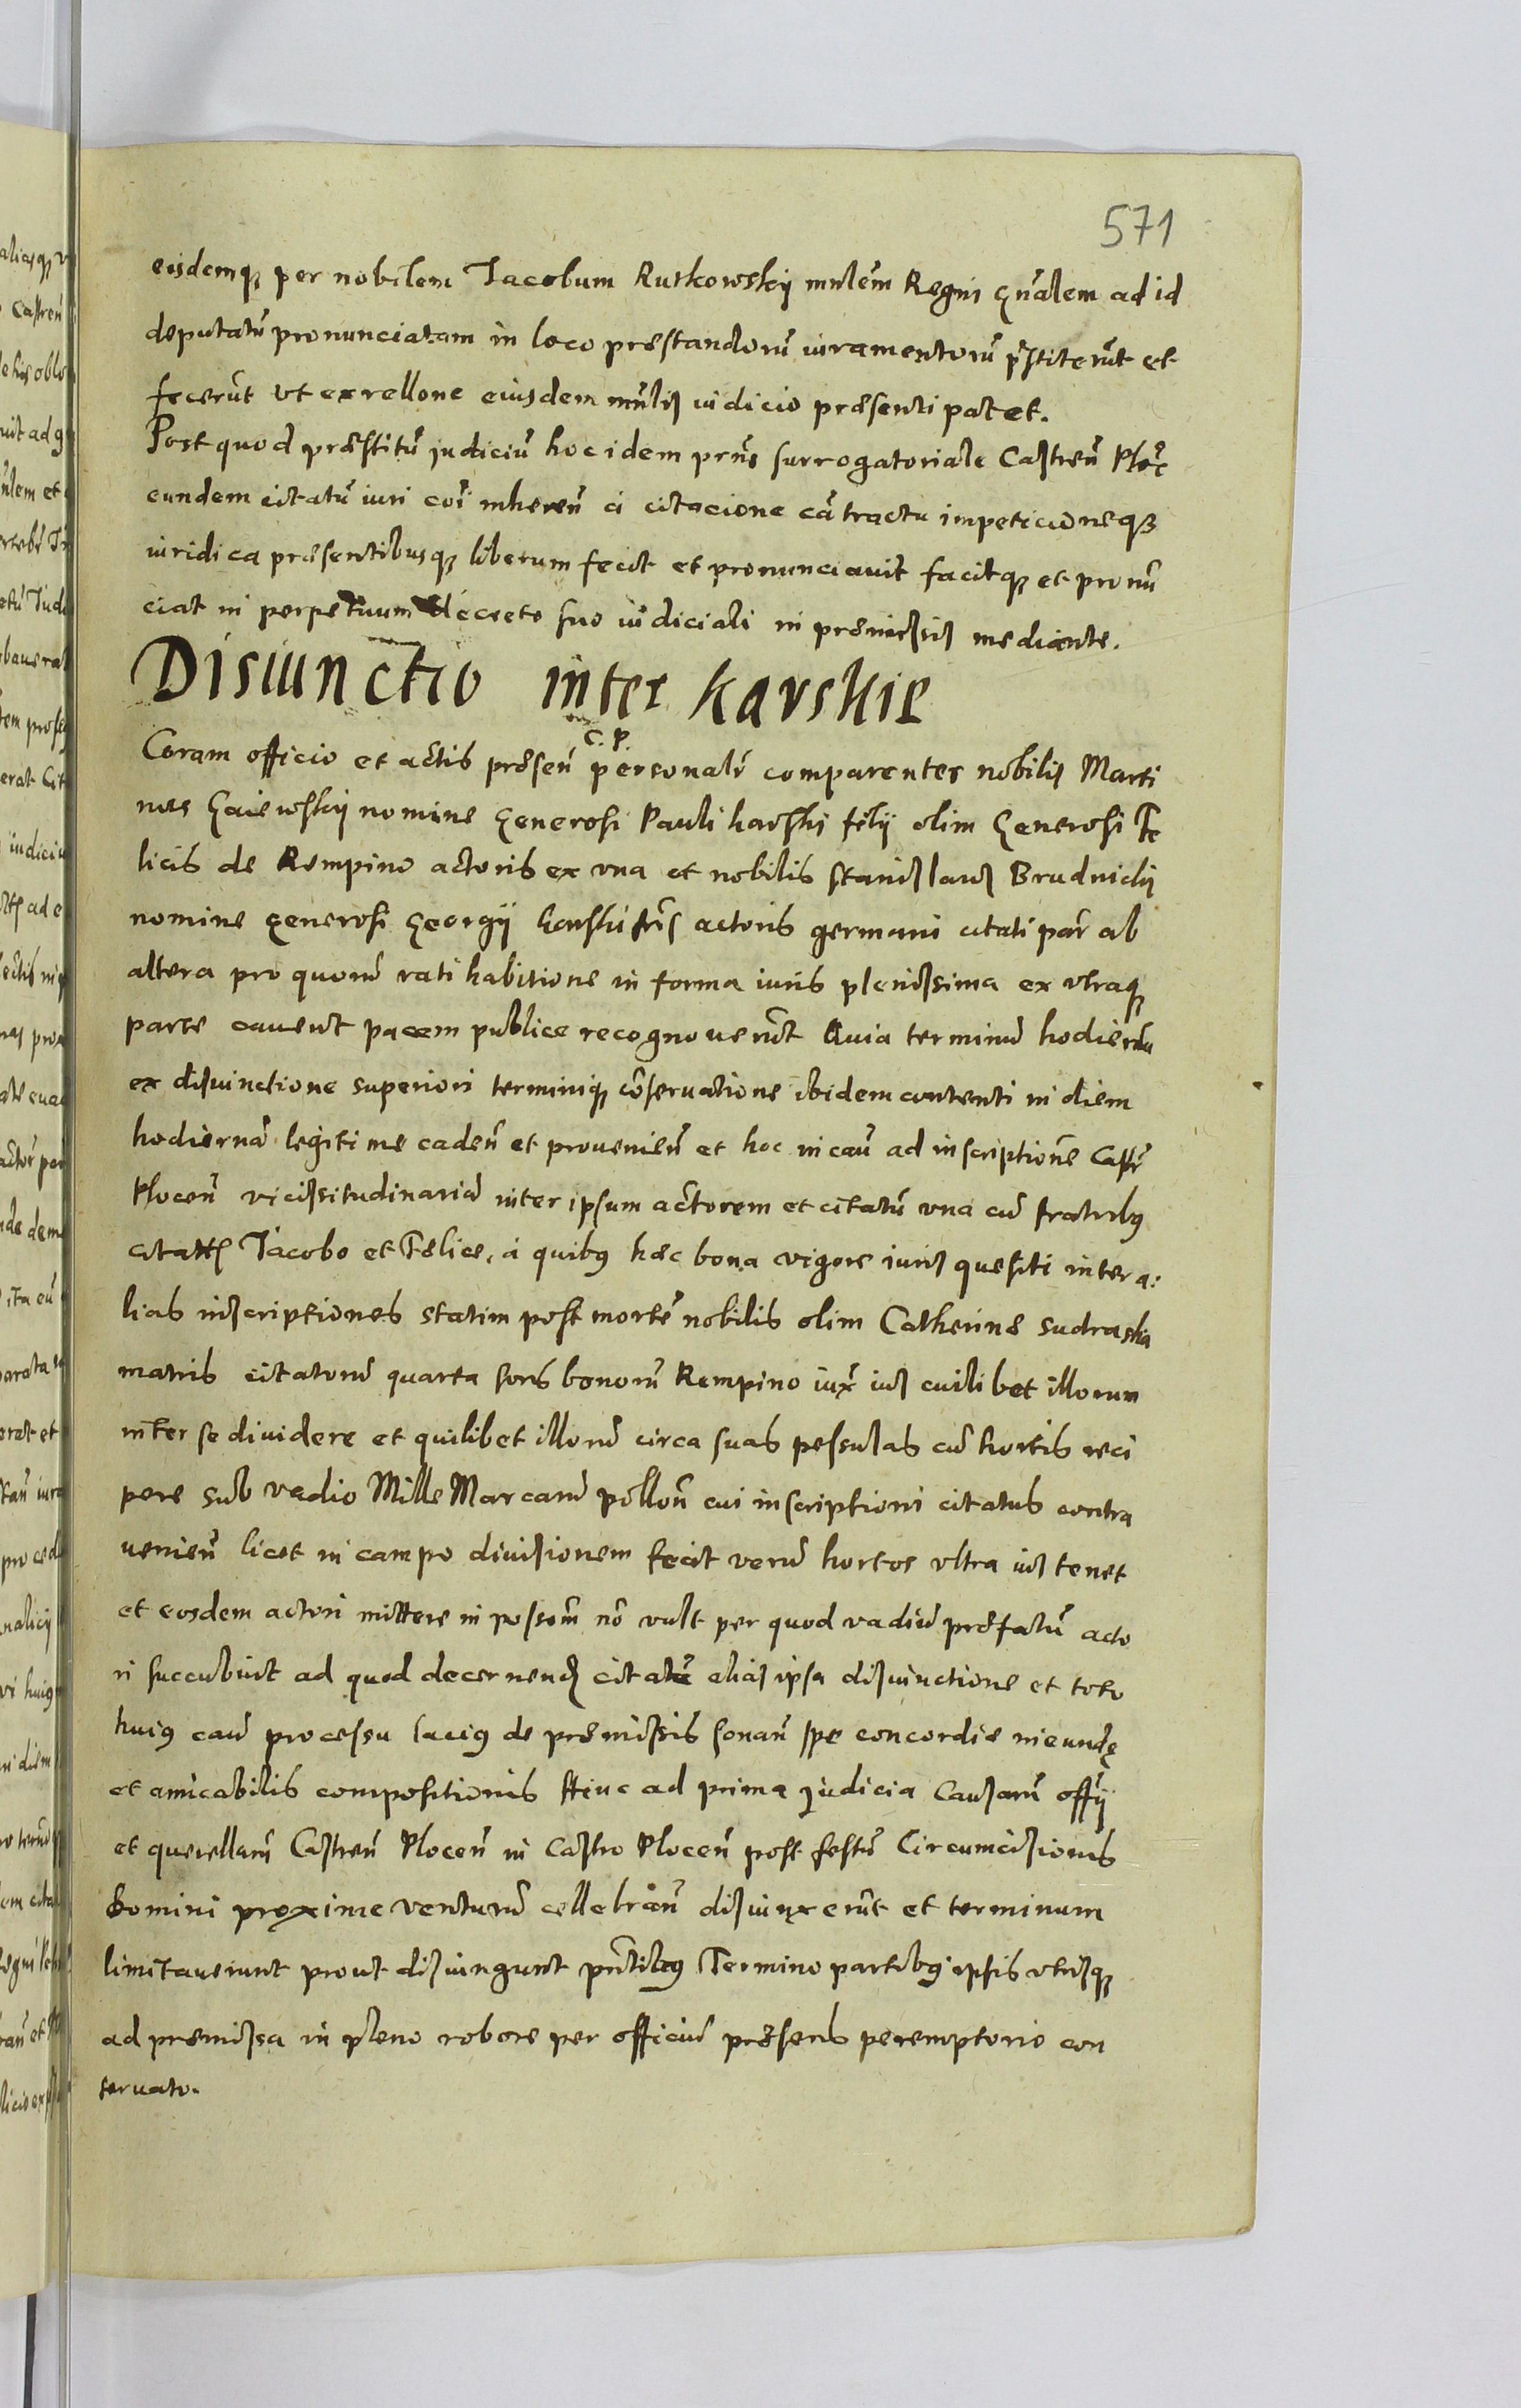 571
eisdemq₃ per nobilem Jacobum Rutkowskij mnlem̃ Regni gnãlem ad id
deputatũ pronunciatam in loco præstandorũ iuramentorũ p̃stiterũt et
fecerũt vt ex rellone eiusdem mñlis iudicio præsenti patet.
Post quod præstitũ judiciũ hoc idem prñs surrogatoriale Castreñ Ploc̃
eundem citatũ iuri coĩ inhereñ a citacione cã tractu impeticioneq₃
iuridica præsentibusq₃ liberum fecit et pronunciauit facitq₃ et pronũ
ciat in perpetuum decreto suo iudiciali in præmissis mediante.
Disiunctio inter Karskie
C. P.
Coram officio et actis præseñ personalr̃ comparentes nobilis Marti
nus Gaiewskij nomine Generosi Pauli karski filij olim Generosi Fe
licis de Rempino actoris ex vna et nobilis Stanislaus Brudnickij
nomine generosi Georgij karski fris̃ actoris germani citati par̃ ab
altera pro quorũ rati habitione in forma iuris plenissima ex vtraq₃
parte cauent pacem publice recognouerũt Quia terminũ hodiernũ
ex disiunctione superiori terminiq₃ cõseruatione ibidem contenti in diem
hodiernã legitime cadeñ et prouenieñ et hoc in cau͂ ad inscriptionẽ Castr̃
Ploceñ vicissitudinariã inter ipsum actorem et citatũ vna cũ fratribus
citatis Jacobo et Felice, a quibus hæc bona vigore iuris quesiti inter a:
lias inscriptiones statim post mortẽ nobilis olim Catherine sudraska
matris citatorũ quarta sors bonorũ Rempino iux̃ ius cuilibet illorum
inter se diuidere et quilibet illorũ circa suas pessulas cũ hortis reci
pere sub vadio Mille Marcarũ polloñ cui inscriptioni citatus contra
uenieñ licet in campo diuisionem fecit verũ hortos vltra ius tenet
et eosdem actori mittere in possom̃ nõ vult per quod vadiũ præfatũ acto
ri succubuit ad quod decernend̃ citatũ alias ipsa disiunctione et toto
huius cau͂ processu lacius de præmissis sonañ spe concordie ineundę
et amicabilis compositionis Hinc ad prima judicia Causarũ offij̃
et querellarũ Castreñ Ploceñ in Castro Ploceñ post festũ Circumcisionis
Domini proxime venturũ cellebrañ disiunxerũt et terminum
limitauerunt prout disiungunt pñtibus Termino partibus ipsis vtrisq₃
ad præmissa in pleno robore per officiũ præsens peremptorie con
seruato.